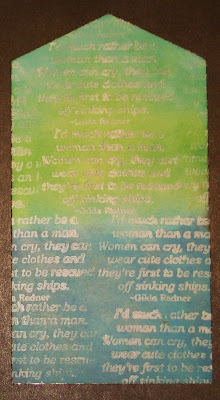 I'd much rather be a
woman than a man.
Women can cry, they can
wear cute clothes and
they're first to be rescued
off sinking ships.
~Gilda Radner
I'd much rather be a
woman than a man.
Women can cry, they can
wear cute clothes and
they're first to be rescued
off sinking ships.
~Gilda Radner
rather be a
than a man.
can cry, they can
e clothes and
first to be rescued
king ships.
a Radner
uch rather be a
n than a man.
can cry, they can
cute clothes and
first to be rescu
sinking ships.
I'd much rather be
woman than a ma
Women can cry, the
wear cute clothes
they're first to be r
off sinking ships
~Gilda Radner
I'd much rather b
woman than a m
Women can cry, the
wear cute clothes
they're first to be r
off sinking ships